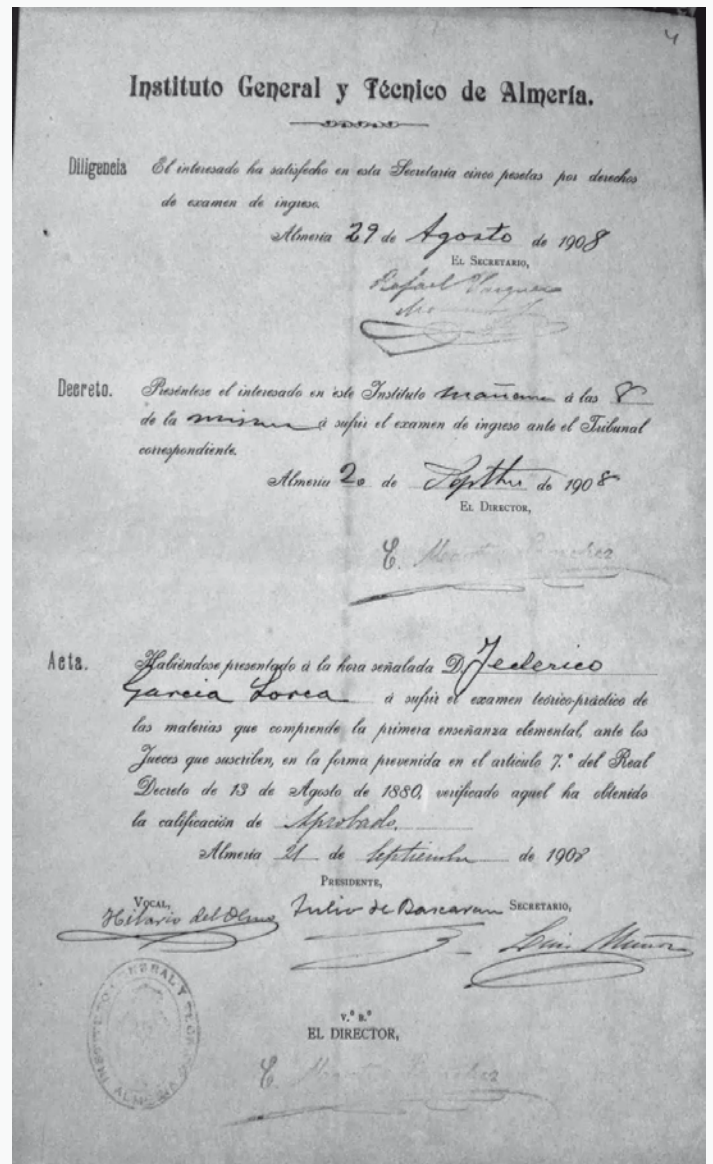 4
Instituto General y Técnico de Almería.
Diligencia El interesado ha satisfecho en esta Secretaría cinco pesetas por derechos
de examen de ingreso.
Almería 29 de Agosto de 1908
EL SECRETARIO,
Rafael Vazquez
Decreto. Preséntese el interesado en este Instituto mañana á las 8
de la misma á sufrir el examen de ingreso ante el Tribunal
correspondiente.
Almería 20 de Septbre de 1908
EL DIRECTOR,
E.
Acta. Habiéndose presentado á la hora señalada D. Federico
Garcia Lorca á sufrir el examen teórico-práctico de
las materias que comprende la primera enseñanza elemental, ante los
Jueces que suscriben, en la forma prevenida en el artículo 7.° del Real
Decreto de 13 de Agosto de 1880, verificado aquel ha obtenido
la calificación de Aprobado.
Almería 21 de Septiembre de 1908
PRESIDENTE,
VOCAL, SECRETARIO,
Hilario del Olmo Julio de Luis Muñoz
V.° B.°
EL DIRECTOR,
E.
INSTITUTO GENERAL Y TECNICO ALMERIA